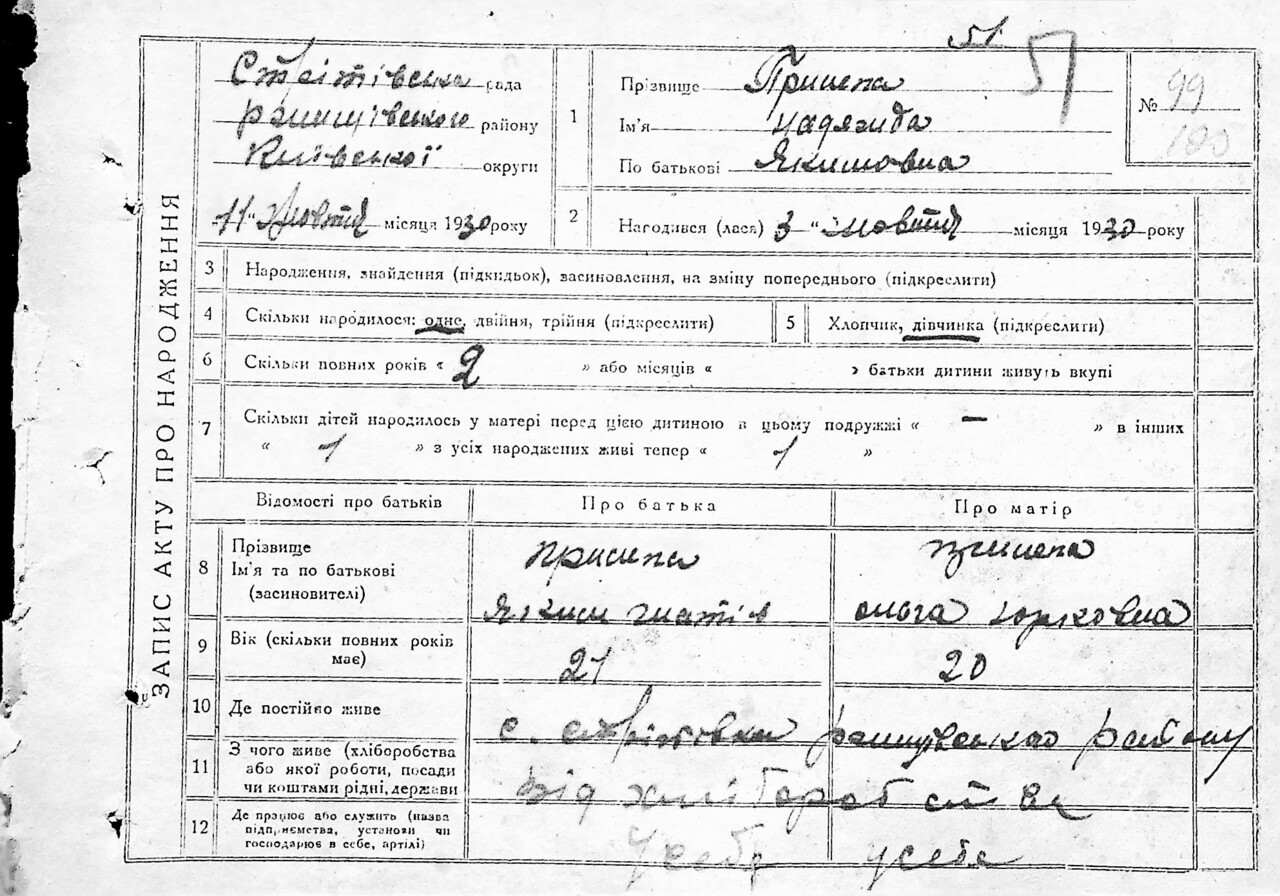 51
51
ЗАПИС АКТУ ПРО НАРОДЖЕННЯ
Стрітівська рада
Ржищівського району
Київської округи
"11" Жовтня місяця 1930 року
1
Прізвище Присепа
Ім'я Надяжда
По батькові Якимовна
№ 99
100
2
Народився (лася) 3 " Жовтня місяця 1930 року
3 Народження, знайдення (підкидьок), засиновлення, на зміну попереднього (підкреслити)
4 Скільки народилося: одне, двійня, трійня (підкреслити)
5 Хлопчик, дівчинка (підкреслити)
6 Скільки повних років « 2 » або місяців « » батьки дитини живуть вкупі
7 Скільки дітей народилось у матері перед цією дитиною в цьому подружжі « — » в інших
« 1 » з усіх народжених живі тепер « 1 »
Відомості про батьків Про батька Про матір
8 Прізвище Присепа Присепа
Ім'я та по батькові
(засиновителі) Яким Гнатів Ольга Юрковна
9 Вік (скільки повних років
має) 21 20
10 Де постійно живе с. Стрітовка Ржищівського району
11 З чого живе (хліборобства
або якої роботи, посади
чи коштами рідні, держави Від хліборобства
12 Де працює або служить (назва
підприємства, установи чи
господарює в себе, артілі) У себе у себе